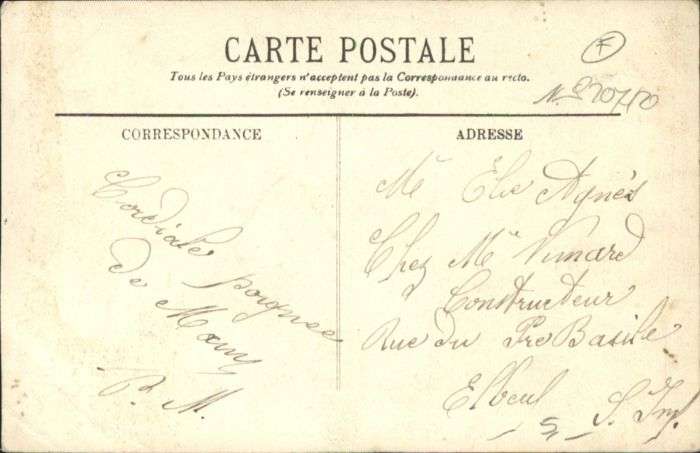 CARTE POSTALE
Tous les Pays étrangers n'acceptent pas la Correspondance au recto.
(Se renseigner à la Poste).
F
CORRESPONDANCE
Cordiale poignee
de Main
P. M.
ADRESSE
Mr Élie Agnès
Chez Mr Vimard
Constructeur
Rue du Pre Basile
Elbeuf
S. Inf.